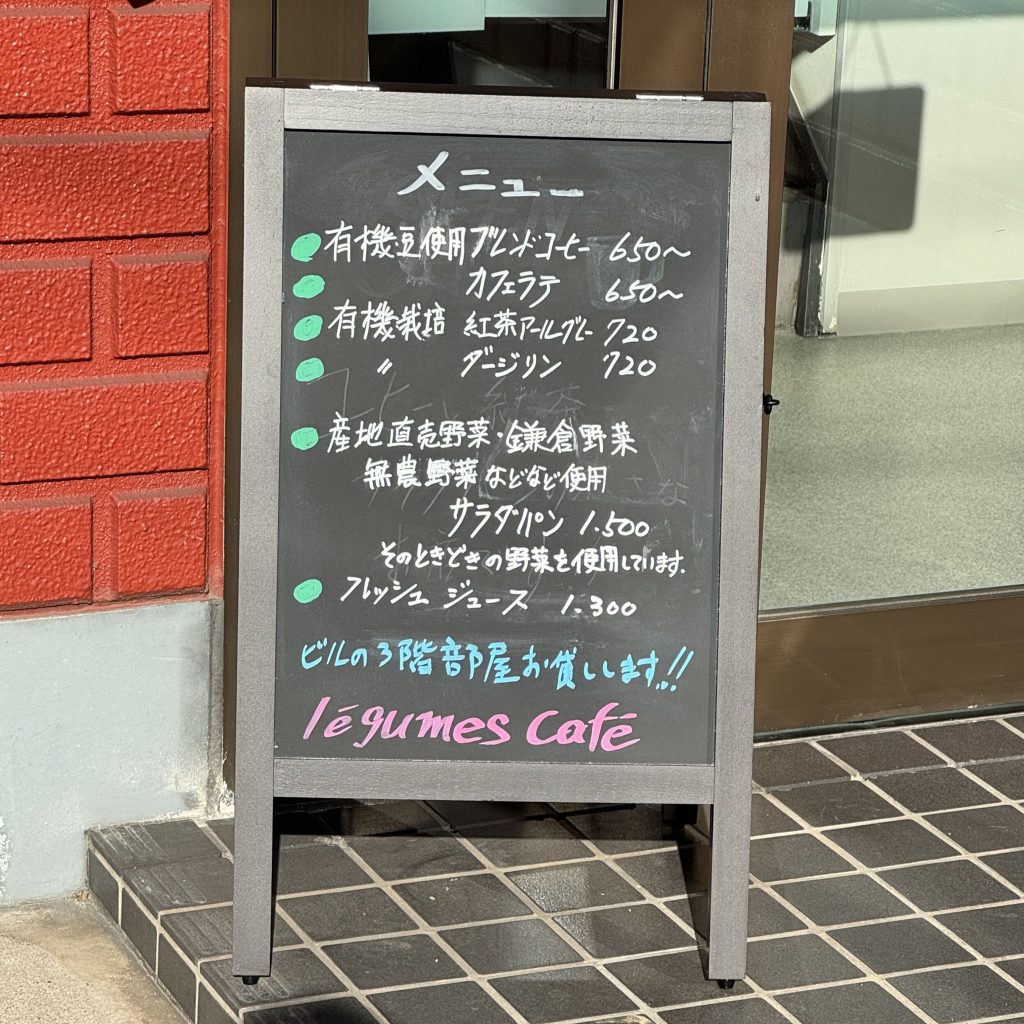 メニュー
有機豆使用ブレンドコーヒー 650〜
カフェラテ 650〜
有機栽培 紅茶アールグレー 720
〃 ダージリン 720
産地直売野菜・鎌倉野菜
無農野菜などなど使用
サラダパン 1.500
そのときどきの野菜を使用しています.
フレッシュ ジュース 1.300
ビルの3階部屋お貸しします!!
légumes Café